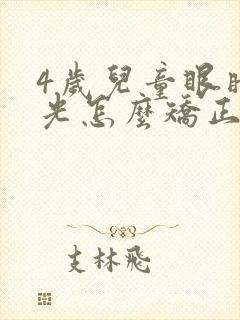 4歲兒童眼睛
光怎麼矯正
支林飛